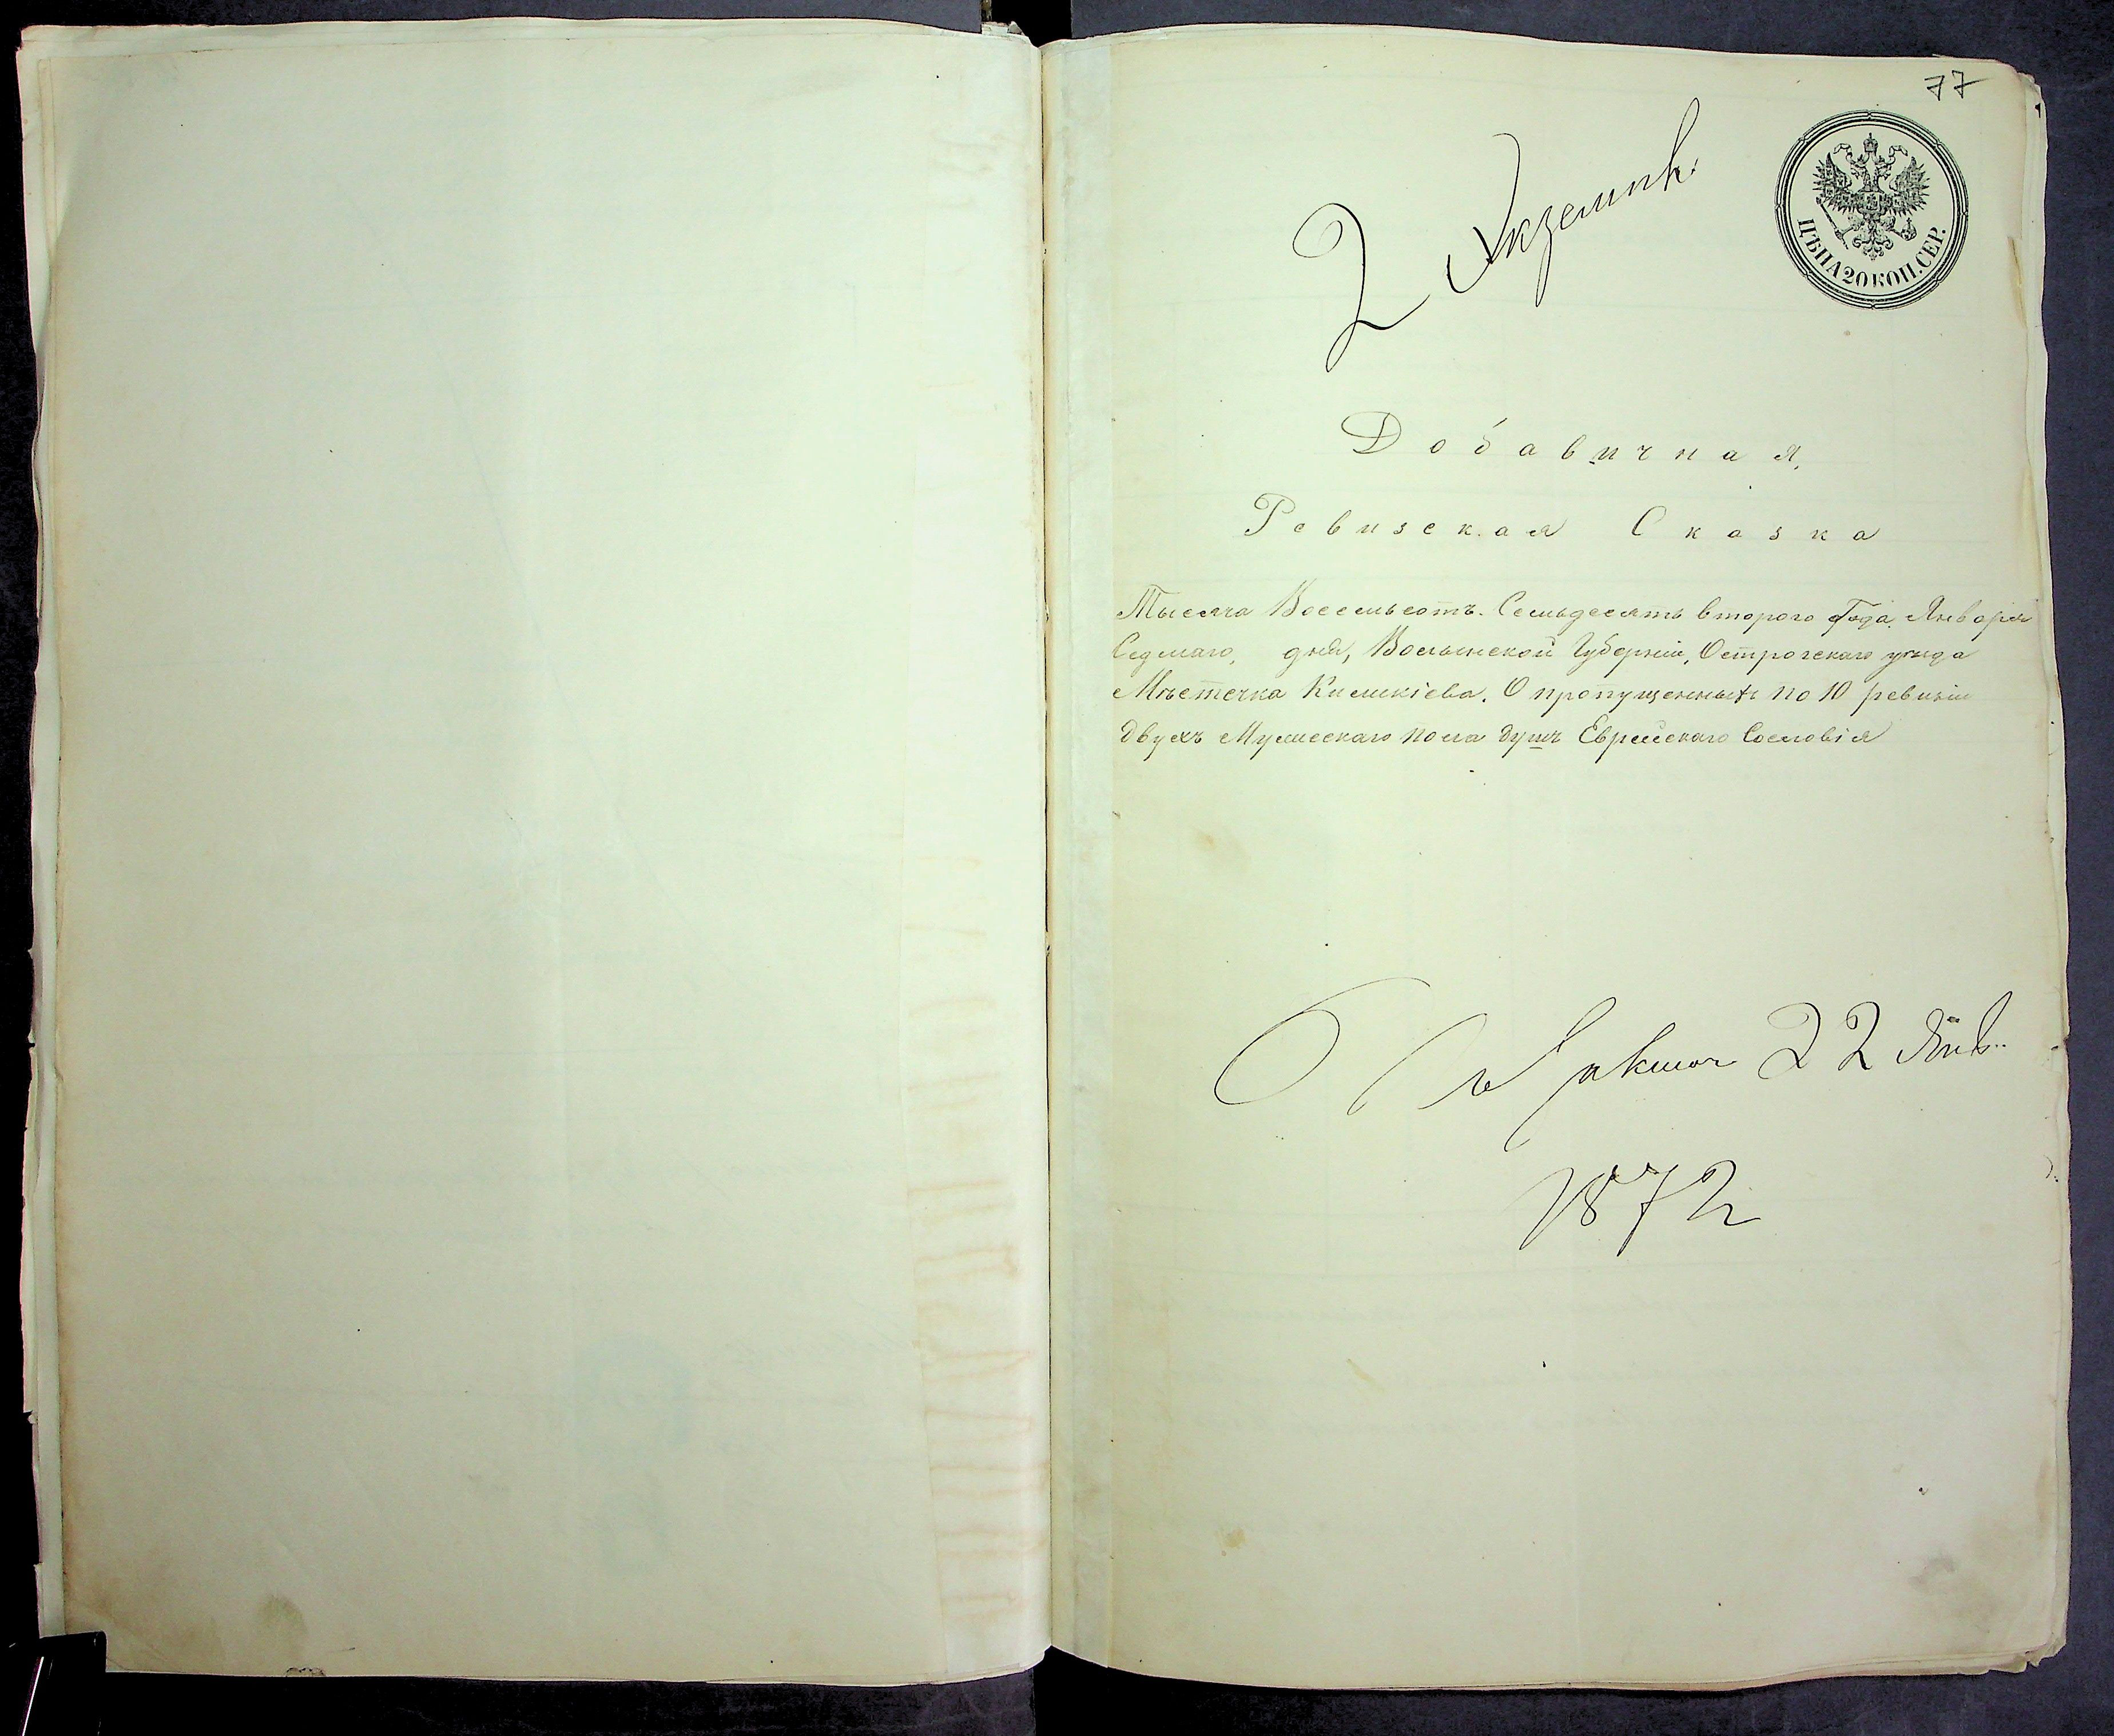 77
2 Экземпл.
ЦѢНА 20 КОП. СЕР.
Добавичная,
Ревизская Сказка
Тысяча Восемьсотъ Семьдесятъ второго Года Января
Седмаго, дня, Волынской Губерніи, Острогскаго уѣзда
Мѣстечка Киликіева. О пропущенныхъ по 10 ревизіи
двухъ Мужескаго пола душъ Еврейскаго Сословія
22 Янв.
1872